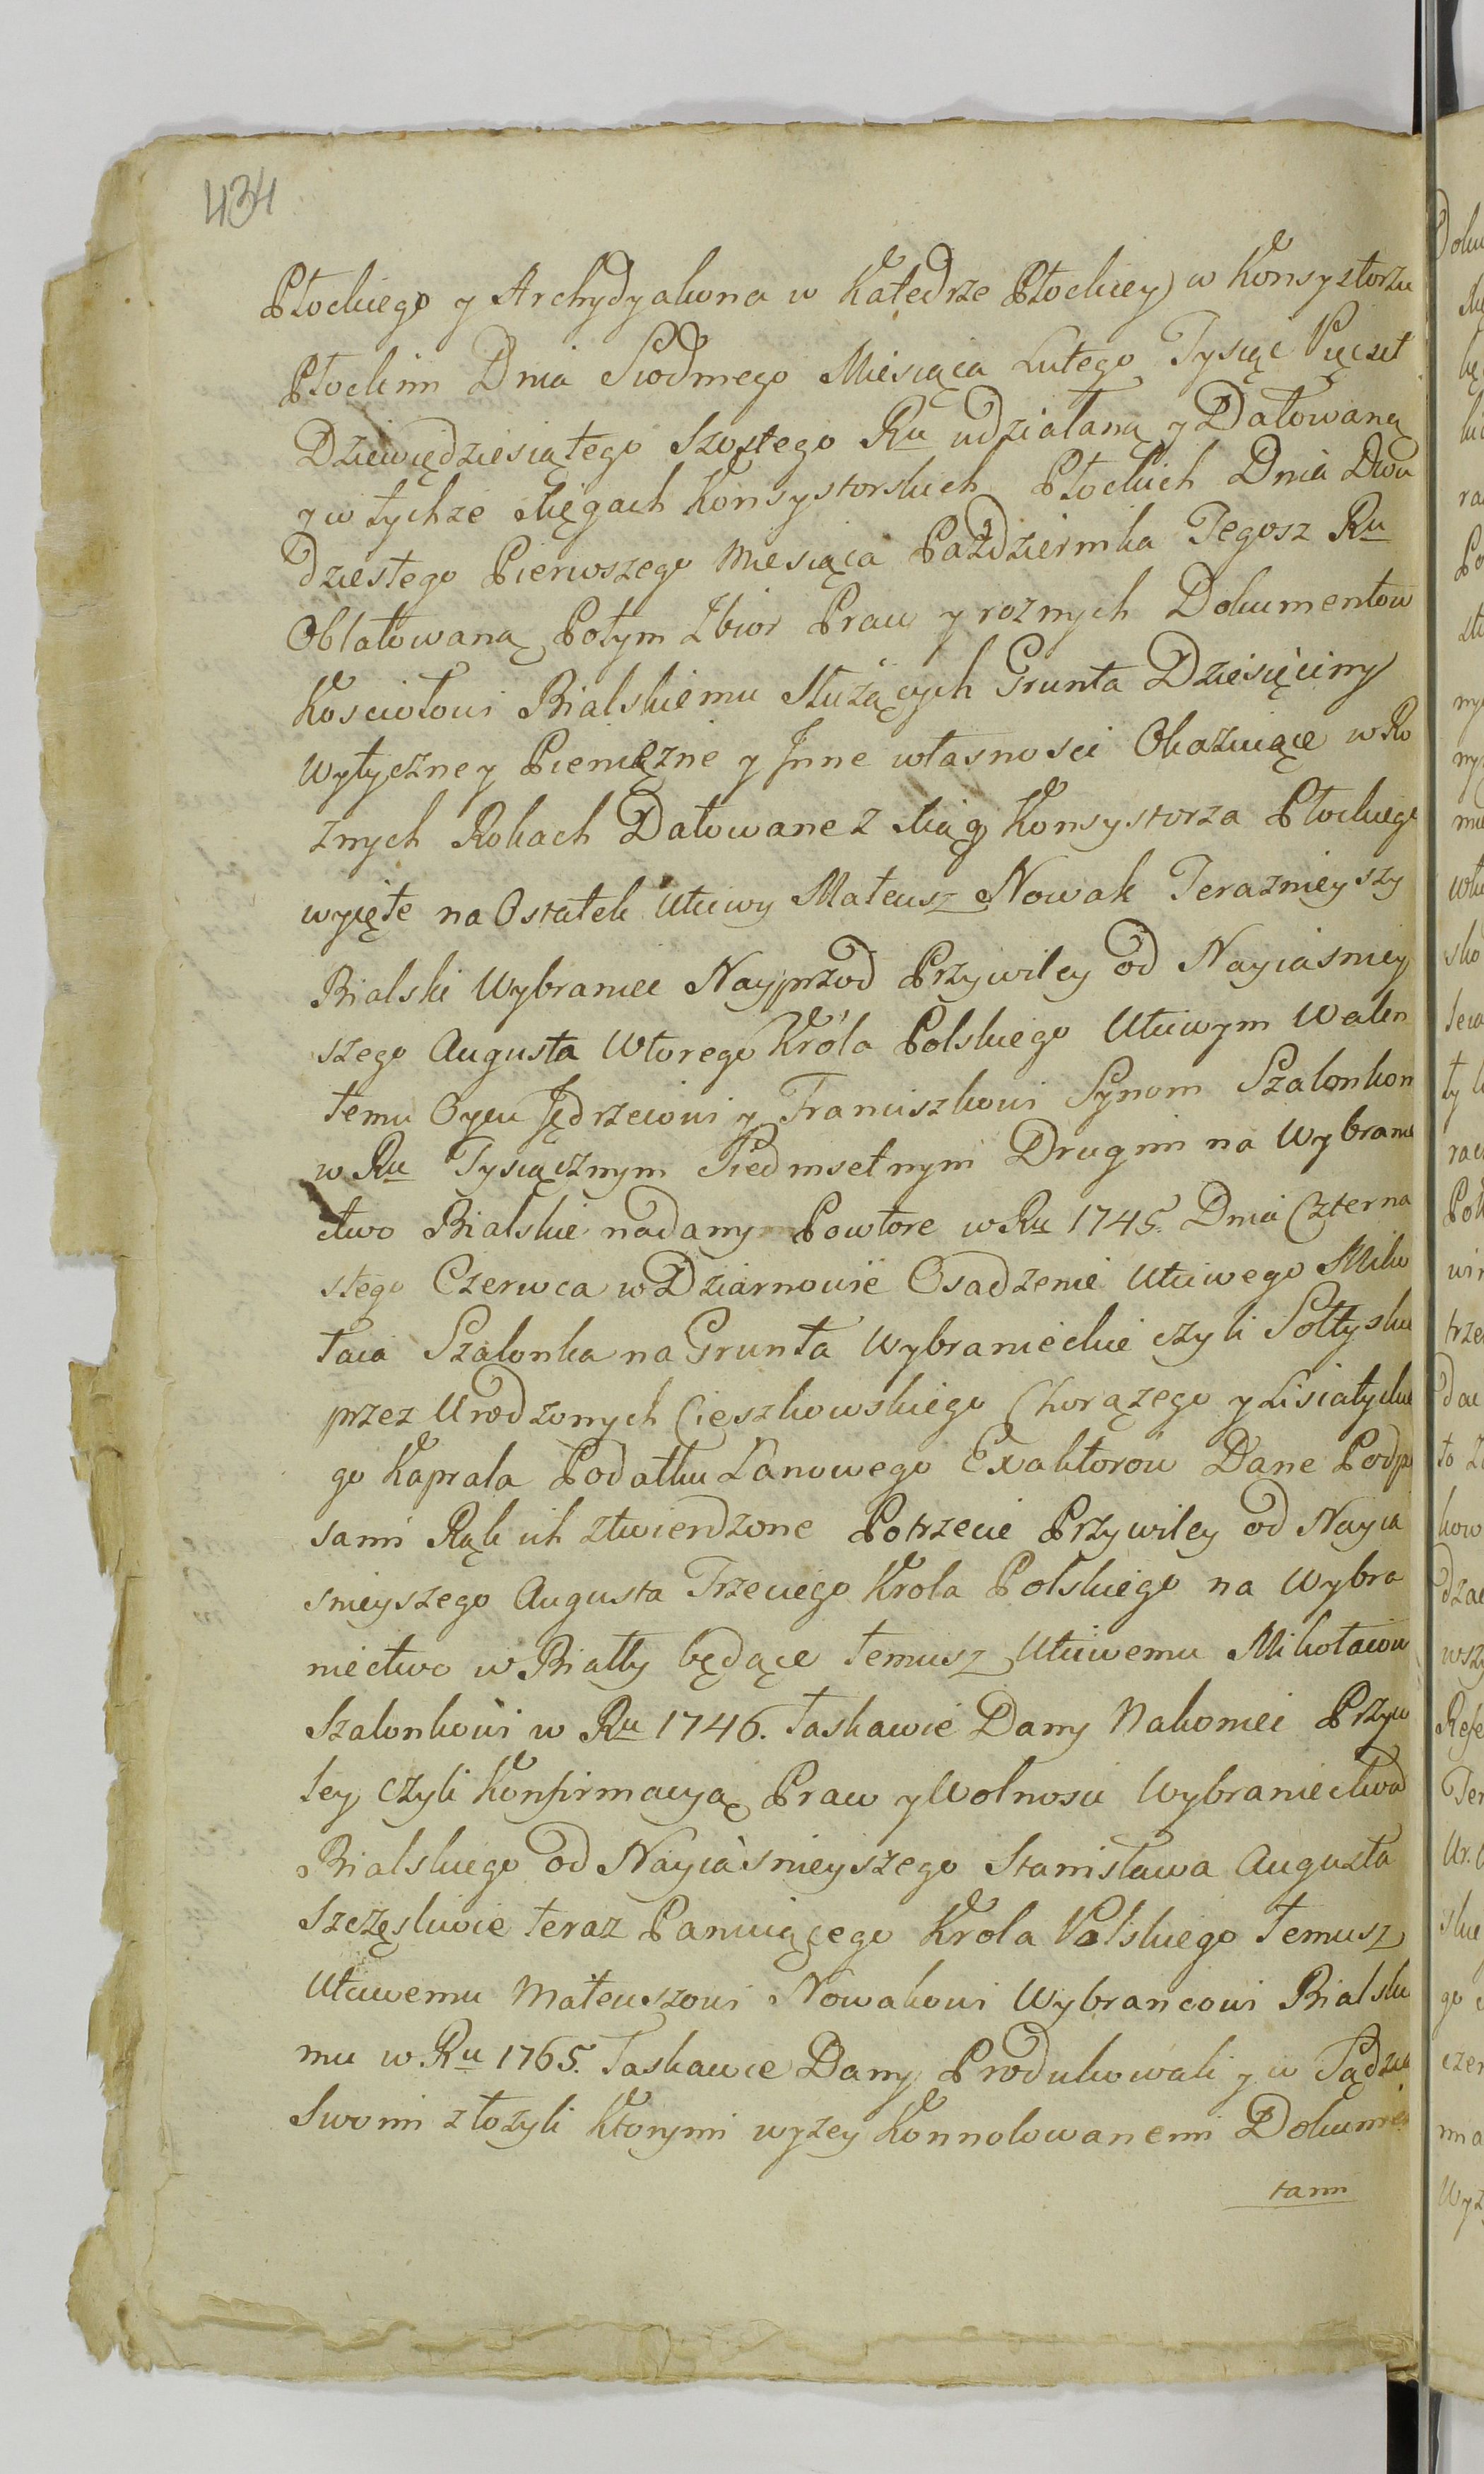 434
Płockiego y Archydyakona w Katedrze Płockiey) w Konsystorzu
Płockim Dnia Siodmego Miesiąca Lutego Tysiąc Pięcset
Dziewiędziesiątego Szostego Ru udziałaną y Datowaną
y w tychze xięgach Konsystorskich Płockich Dnia Dwu
dziestego Pierwszego Miesiąca Pażdziernika Tegosz Ru
Oblatowaną Potym Zbior Praw y roznych Dokumentow
Kosciołowi Bialskiemu Służących Grunta Dziesięciny
Wytyczne y Pieniężne y Jnne własnosci Okazuiące w Ro
znych Rokach Datowane z xiąg Konsystorza Płockiego
wyięte na Ostatek Utciwy Mateusz Nowak Teraznieyszy
Bialski Wybraniec Nayprzod Przywiley od Nayiasniey
szego Augusta Wtorego Króla Polskiego Utciwym Walen
temu Oycu Jędrzeiowi y Franciszkowi Synom Szalonkom
w Ru Tysiącznym Siedmsetnym Drugim na Wybranie
ctwo Bialskie nadany Powtore w Ru 1745. Dnia Czterna
stego Czerwca w Dziarnowie Osadzenie Utciwego Miko
łaia Szalonka na Grunta Wybranieckie czyli Sołtyskie
przez Urodzonych Cieszkowskiego Chorązego y Lisiatyckie
go Kaprala Podatku Łanowego Exaktorow Dane Podpi
sami Rąk ich ztwierdzone Potrzecie Przywiley od Nayia
snieyszego Augusta Trzeciego Krola Polskiego na Wybra
niectwo w Biały będące temusz Utciwemu Mikołaiowi
Szalonkowi w Ru 1746. łaskawie Dany Nakoniec Przywi
ley czyli Konfirmacyą Praw y Wolnosci Wybraniectwa
Bialskiego od Nayiasnieyszego Stanisława Augusta
Szczęsliwie teraz Panuiącego Krola Polskiego temusz
Utciwemu Mateuszowi Nowakowi Wybrancowi Bialskie
mu w Ru 1765. Łaskawie Dany Produkowali y w Sądzie
Swoim złozyli Ktorymi wyzey Konnotowanemi Dokumen
tami